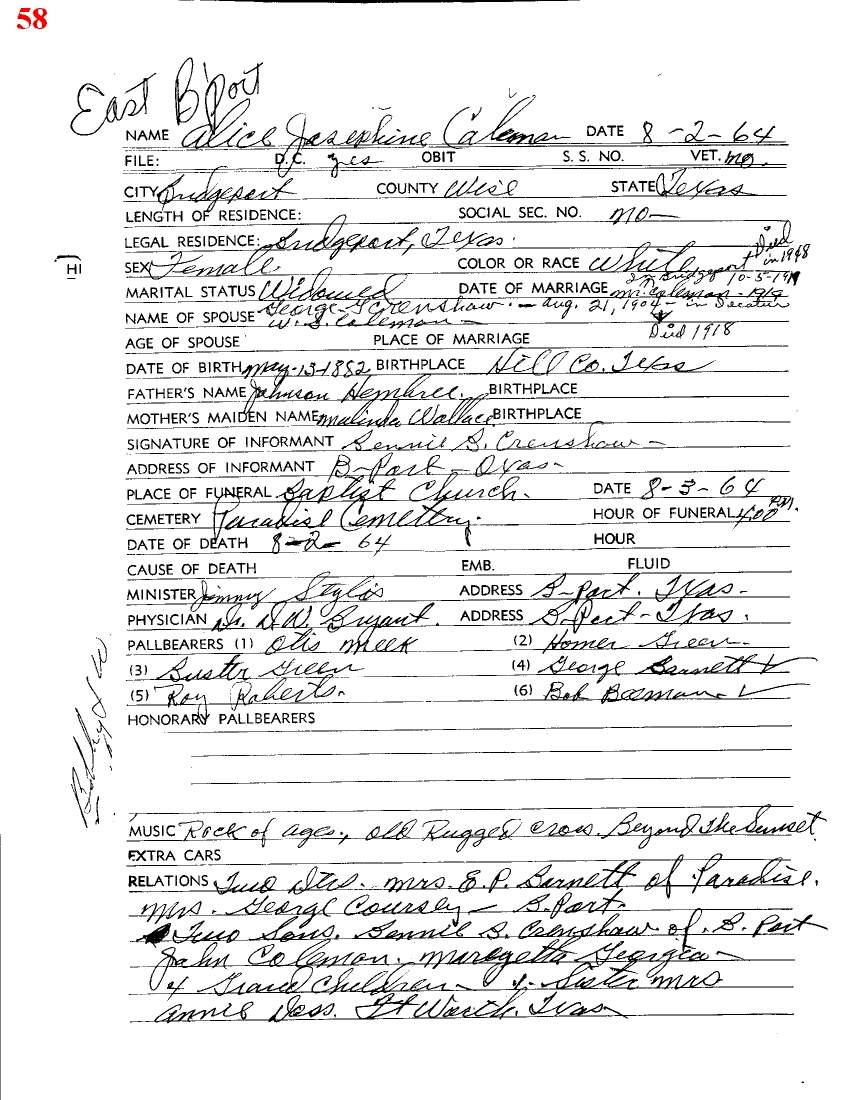 58
East B'Port
NAME Alice Josephine Coleman DATE 8-2-64
FILE: D.C. yes OBIT S. S. NO. VET. no.
CITY Bridgeport COUNTY Wise STATE Texas
LENGTH OF RESIDENCE: SOCIAL SEC. NO. no
LEGAL RESIDENCE: Bridgeport, Texas.
Died in 1948
SEX Female. COLOR OR RACE White
In Bridgeport 10-5-1919
MARITAL STATUS Widowed DATE OF MARRIAGE Mr. Coleman - 1919
George T. Crenshaw. - Aug. 21, 1904 - in Decatur
NAME OF SPOUSE W. S. Coleman
Died 1918
AGE OF SPOUSE PLACE OF MARRIAGE
DATE OF BIRTH May-13-1882 BIRTHPLACE Hill Co. Texas
FATHER'S NAME Johnson Hembree. BIRTHPLACE
MOTHER'S MAIDEN NAME Malinda Wallace BIRTHPLACE
SIGNATURE OF INFORMANT Bennie B. Crenshaw
ADDRESS OF INFORMANT B-Port
PLACE OF FUNERAL Baptist Church. DATE 8-3-64
CEMETERY Paradise Cemetery. HOUR OF FUNERAL 4:00 P.M.
DATE OF DEATH 8-2-64 HOUR
CAUSE OF DEATH EMB. FLUID
MINISTER Jimmy ADDRESS B-Port. Texas-
PHYSICIAN Dr. Bryant. ADDRESS B-Port-Texas.
PALLBEARERS (1) Otis Meek (2) Homer Green
(3) Buster Green (4) George Barnett ✓
(5) Roy Roberts. (6) Bob Bosman ✓
HONORARY PALLBEARERS
MUSIC Rock of ages, old Rugged cross. Beyond The Sunset
EXTRA CARS
RELATIONS Two Dtrs. Mrs. E. P. Barnett of Paradise.
Mrs. George Coursey - B. Port.
Two Sons. Bennie B. Crenshaw of B. Port
John Coleman. Georgia
4 Grand Children - Sister Mrs
Annie Doss. Ft Worth. Texas
HI